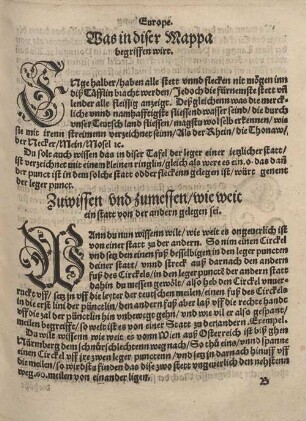 Europe.
Was in diser Mappa
begriffen wirt.
ENge halber/haben alle stett vnnd flecken nit mögen inn
diß Täfflin bracht werden/Jedoch die fürnemste stett vñ
lender alle fleissig anzeigt. Deßgleichenn was die merck
liche vnnd namhafftigste fliessend wasser seind/die durch
vnser Teutsch land fliessen/magstu wol selb erkennen/wie
sie mit irenn streimenn verzeichnet seinn/Als der Rhein/die Thonaw/
der Necker/Mein/Mosel ꝛc.
Du solt auch wissen das in diser Tafel der leger einer jetzlicher statt/
ist verzeichnet mit einem kleinen ringlin/gleich als were es ein .o. das daũ
der punct ist in dem solche statt oder flecken gelegen ist/würt genent
der leger punct.
Zuwissen vnd zumessen/wie weit
ein statt von der andern gelegen sei.
WAnn du nun wissenn wilt/wie weit es ongeuerlich ist
von einer statt zu der andern. So nim einen Circkel
vnd setz den einen fuß desselbigen in den leger puncten
deiner statt/vnnd streck auß darnach den andern
fuß des Circkels/in den leger puncte der andern statt
dahin du messen gewölt/also heb den Circkel vnuer-
ruckt vff/setz jn vff die leyter der teutschen meilen/einen fuß des Circkels
in die erst lini der pünctelin/den andern fuß aber laß vff die rechte hande
vff die zal der pünctlin hin vnbewegt gehn/vnd wie vil er also gespant/
meilen begreifft/so weit ist es von einer Statt zu der andern. Exempel.
Du wilt wissenn wie weit es vonn Wien auß Osterreich ist biß ghen
Nürmberg dem schnürschlechtenn weg nach/So thů eins/vnnd spanne
einen Circkel vff jre zwen leger punctenn/vnd setz jn darnach hinuff vff
die meilen/so wirdstu finden das dise zwo stett vngewerlich den nehstenn
weg .60. meilen von einander ligen.
B